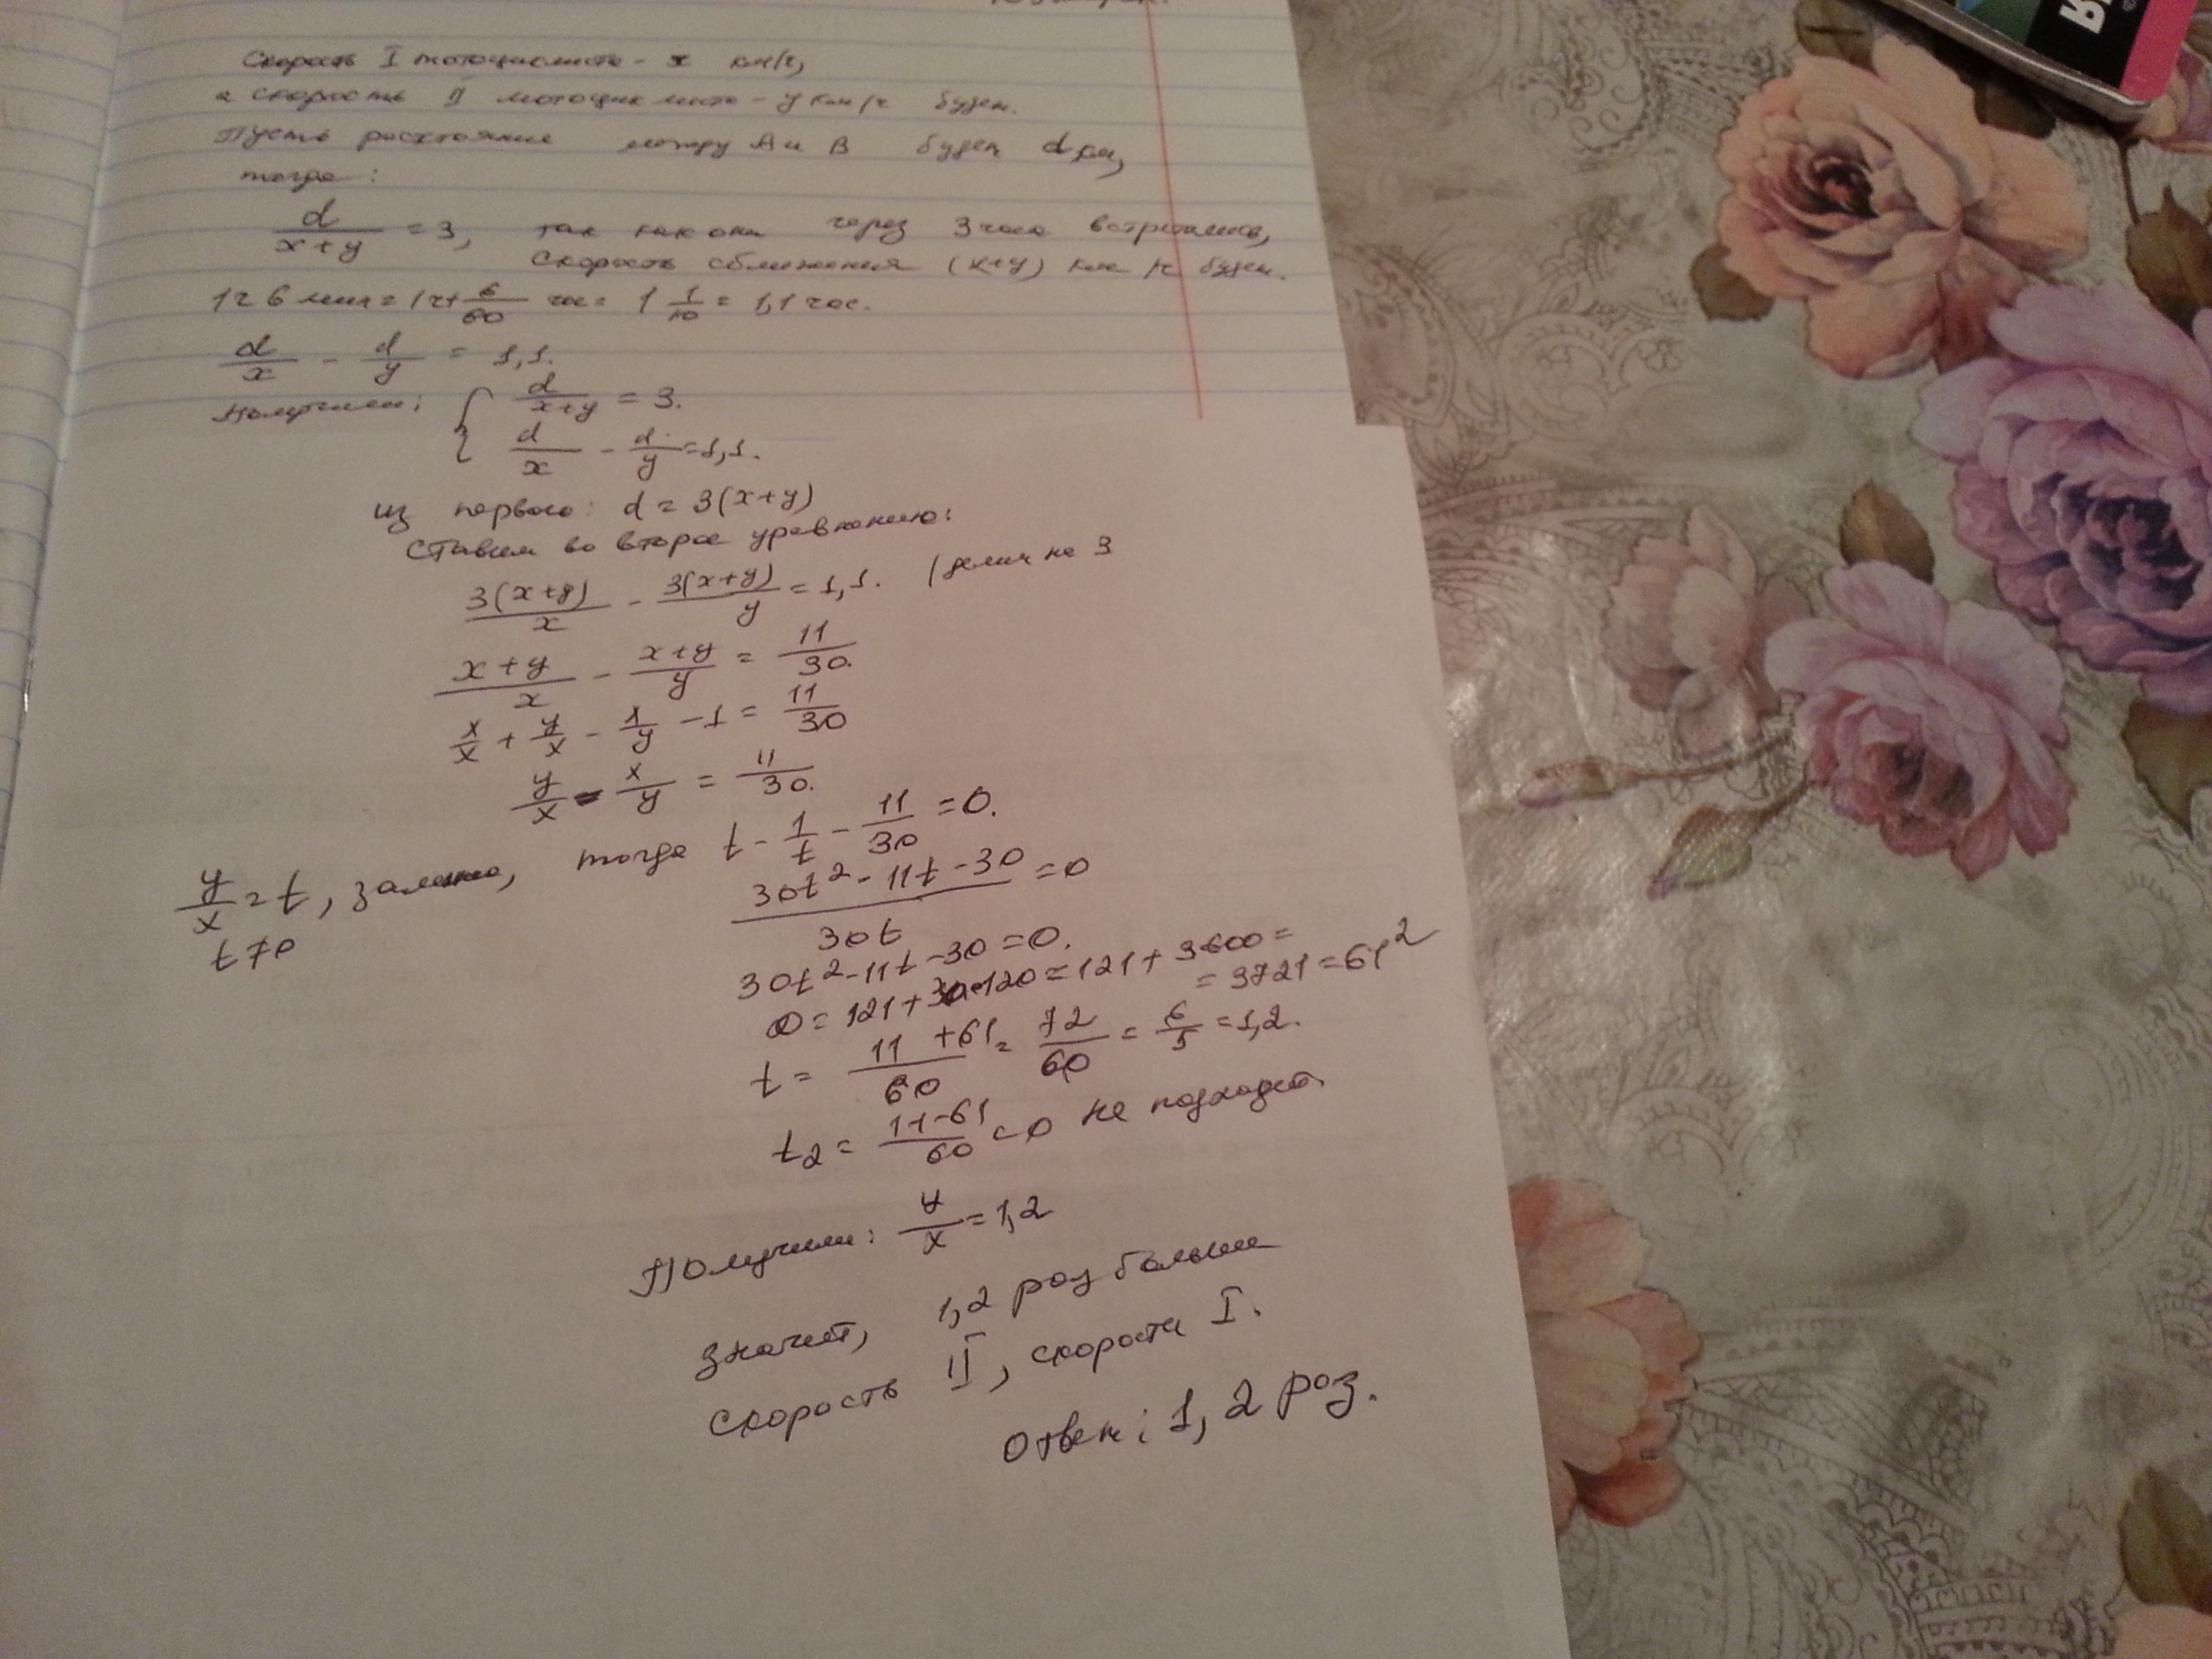 Скорость I мотоциклиста - x км/ч,
а скорость II мотоциклиста - y км/ч будем.
Пусть расстояние между A и B будем d км,
тогда:
d/(x+y) = 3, так как они через 3 часа встретились,
Скорость сближения (x+y) км/ч будем.
1ч 6 мин = 1ч + 6/60 час = 1 1/10 = 1,1 час.
d/x - d/y = 1,1.
Получили: { d/(x+y) = 3.
d/x - d/y = 1,1.
Из первого: d = 3(x+y)
Ставим во второе уравнению:
3(x+y)/x - 3(x+y)/y = 1,1. (делим на 3
(x+y)/x - (x+y)/y = 11/30.
x/x + y/x - x/y - 1 = 11/30
y/x - x/y = 11/30.
y/x = t, замена, тогда t - 1/t - 11/30 = 0.
t ≠ 0
(30t² - 11t - 30)/30t = 0
30t² - 11t - 30 = 0.
D = 121 + 30·120 = 121 + 3600 =
= 3721 = 61²
t = (11 + 61)/60 = 72/60 = 6/5 = 1,2.
t2 = (11-61)/60 < 0 не подходит.
Получили: y/x = 1,2
Значит, 1,2 раз больше
скорость II, скорости I.
Ответ: 1,2 раз.